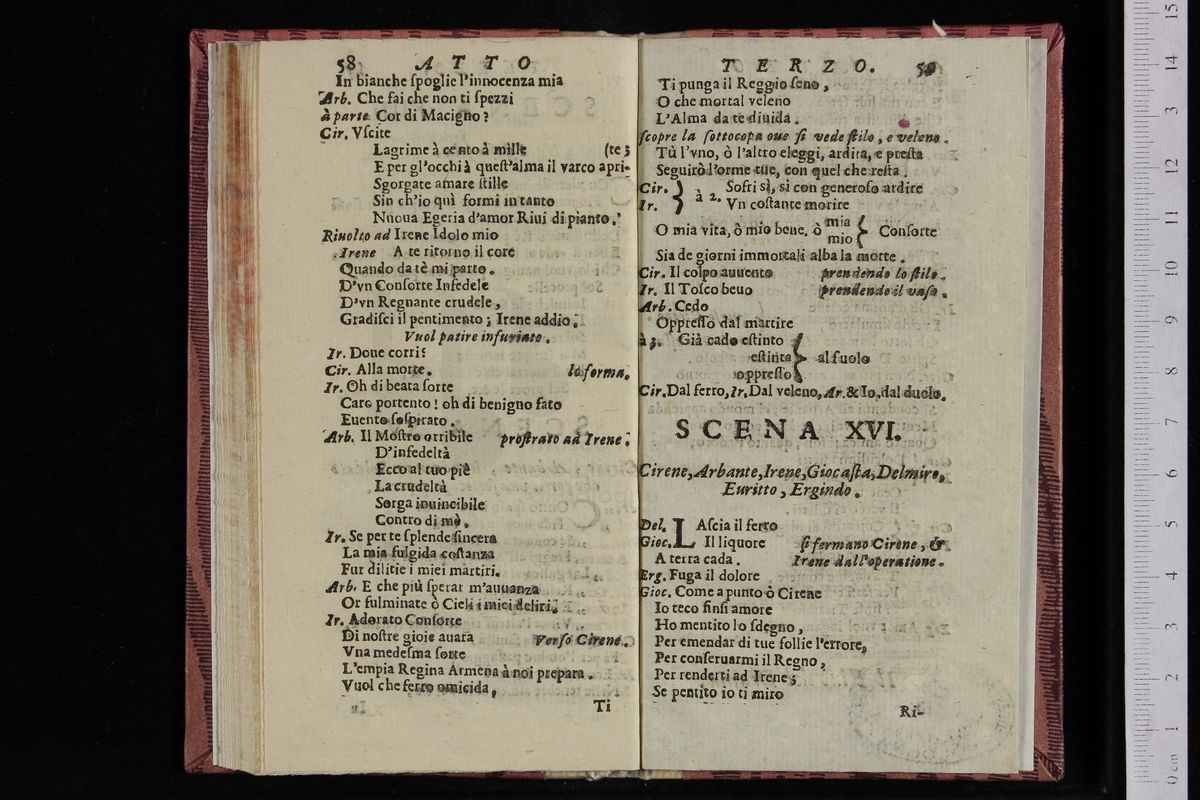 58 ATTO
In bianche ſpoglie l'innocenza mia
Arb. Che fai che non ti ſpezzi
à parte Cor di Macigno?
Cir. Vſcite
Lagrime à cento à mille (te;
E per gl'occhi à queſt'alma il varco apri-
Sgorgate amare ſtille
Sin ch'io quì formi intanto
Nuoua Egeria d'amor Riui di pianto.
Riuolto ad Irene Idolo mio
Irene A te ritorno il core
Quando da tè mi parto.
D'vn Conſorte Infedele
D'vn Regnante crudele,
Gradiſci il pentimento; Irene addio.
Vuol patire infuriato.
Ir. Doue corri?
Cir. Alla morte. lo ferma.
Ir. Oh di beata ſorte
Caro portento! oh di benigno fato
Euento ſoſpirato.
Arb. Il Moſtro orribile proſtrato ad Irene.
D'infedeltà
Ecco al tuo piè
La crudeltà
Sorga inuincibile
Contro di mè.
Ir. Se per te ſplende ſincera
La mia fulgida coſtanza
Fur dilitie i miei martiri.
Arb. E che più ſperar m'auuanza
Or fulminate ò Cieli i miei deliri.
Ir. Adorato Conſorte
Di noſtre gioie auara Verſo Cirene.
Vna medeſma ſorte
L'empia Regina Armena à noi prepara.
Vuol che ferro omicida,
Ti
TERZO. 59
Ti punga il Reggio ſeno,
O che mortal veleno
L'Alma da te diuida.
ſcopre la ſottocopa oue ſi vede ſtilo, e veleno.
Tù l'vno, ò l'altro eleggi, ardita, e preſta
Seguirò l'orme tue, con quel che reſta.
Cir. } à 2. Sofri sì, sì con generoſo ardire
Ir. } Vn coſtante morire
O mia vita, ò mio bene, ò mia } Conſorte
mio }
Sia de giorni immortali alba la morte.
Cir. Il colpo auuento prendendo lo ſtilo.
Ir. Il Toſco beuo prendendo il vaſo.
Arb. Cedo
Oppreſſo dal martire
à 3. Già cado eſtinto }
eſtinta } al ſuolo
oppreſſo }
Cir. Dal ferro, Ir. Dal veleno, Ar. & Io, dal duolo.
SCENA XVI.
Cirene, Arbante, Irene, Giocaſta, Delmiro,
Euritto, Ergindo.
Del. LAſcia il ferro
Gioc. Il liquore ſi fermano Cirene, &
A terra cada. Irene dall'operatione.
Erg. Fuga il dolore
Gioc. Come a punto ò Cirene
Io teco finſi amore
Ho mentito lo ſdegno,
Per emendar di tue follie l'errore,
Per conſeruarmi il Regno,
Per renderti ad Irene;
Se pentito io ti miro
Ri-
0 cm 1 2 3 4 5 6 7 8 9 10 11 12 13 14 15